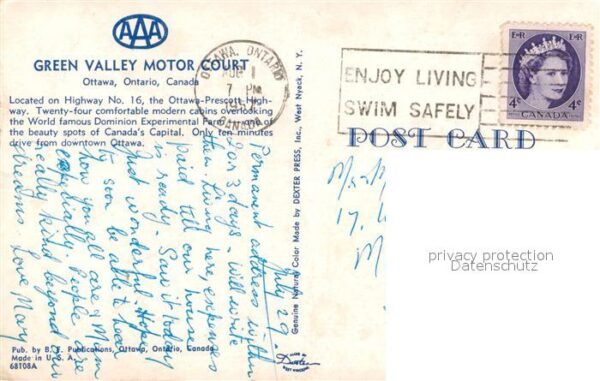 AAA
GREEN VALLEY MOTOR COURT
Ottawa, Ontario, Canada
Located on Highway No. 16, the Ottawa-Prescott High-
way. Twenty-four comfortable modern cabins overlooking
the World famous Dominion Experimental Farm, one of
the beauty spots of Canada's Capital. Only ten minutes
drive from downtown Ottawa.
OTTAWA, ONTARIO
AUG 1
7 PM
CANADA
ENJOY LIVING
SWIM SAFELY
E II R
E II R
4¢
4¢
CANADA
POST CARD
July 29.
Permanent address within
2 or 3 days. Will write
then. Living here, expenses
paid till our house
is ready. Saw it today
Just wonderful. Hope
to soon be able to hear
how you all are & Mam
especially. People are
really kind beyond our
dreams. Love Mary
17.
M
privacy protection
Datenschutz
Genuine Natural Color Made by DEXTER PRESS, Inc., West Nyack, N. Y.
Pub. by B. F. Publications, Ottawa, Ontario, Canada
Made in U. S. A.
68108A
MADE BY
Dexter
WEST NYACK, NY